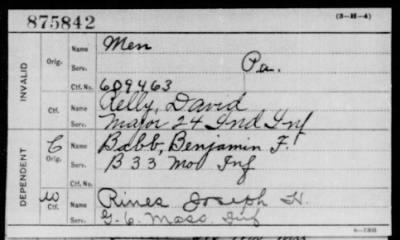 875842 (3-H-4)
INVALID
Orig. Name Men
Serv. Pa.
Ctf. No. 609463
Ctf. Name Kelly, David
Serv. Major 24 Ind Inf
DEPENDENT
C Orig. Name Babb, Benjamin F.
Serv. B 33 Mo Inf
Ctf. No.
W Ctf. Name Rines Joseph H.
Serv. G. 6. Mass. Inf